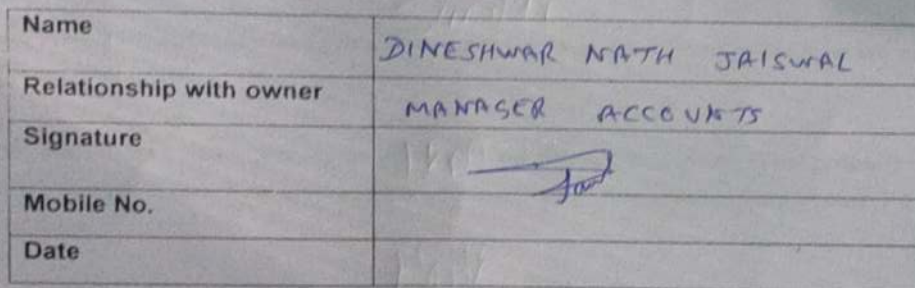 Name DINESHWAR NATH JAISWAL
Relationship with owner MANAGER ACCOUNTS
Signature
Mobile No.
Date